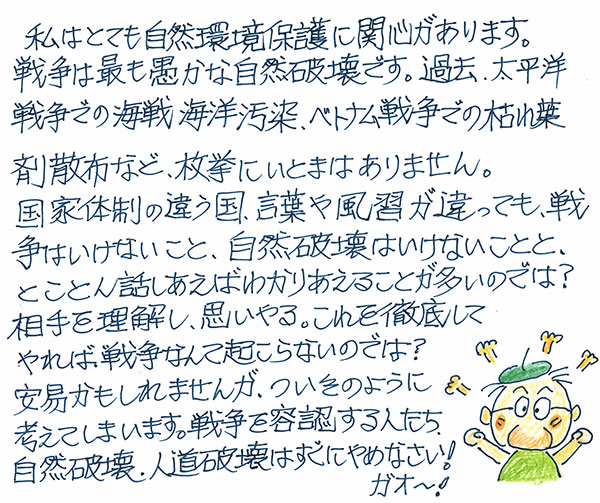 私はとても自然環境保護に関心があります。
戦争は最も愚かな自然破壊です。過去、太平洋
戦争での海戦海洋汚染、ベトナム戦争での枯れ葉
剤散布など、枚挙にいとまはありません。
国家体制の違う国、言葉や風習が違っても、戦
争はいけないこと、自然破壊はいけないことと、
とことん話しあえばわかりあえることが多いのでは?
相手を理解し、思いやる。これを徹底して
やれば、戦争なんて起こらないのでは?
安易かもしれませんが、ついそのように
考えてしまいます。戦争を容認する人たち、
自然破壊、人道破壊はすぐにやめなさい!
ガオ〜!